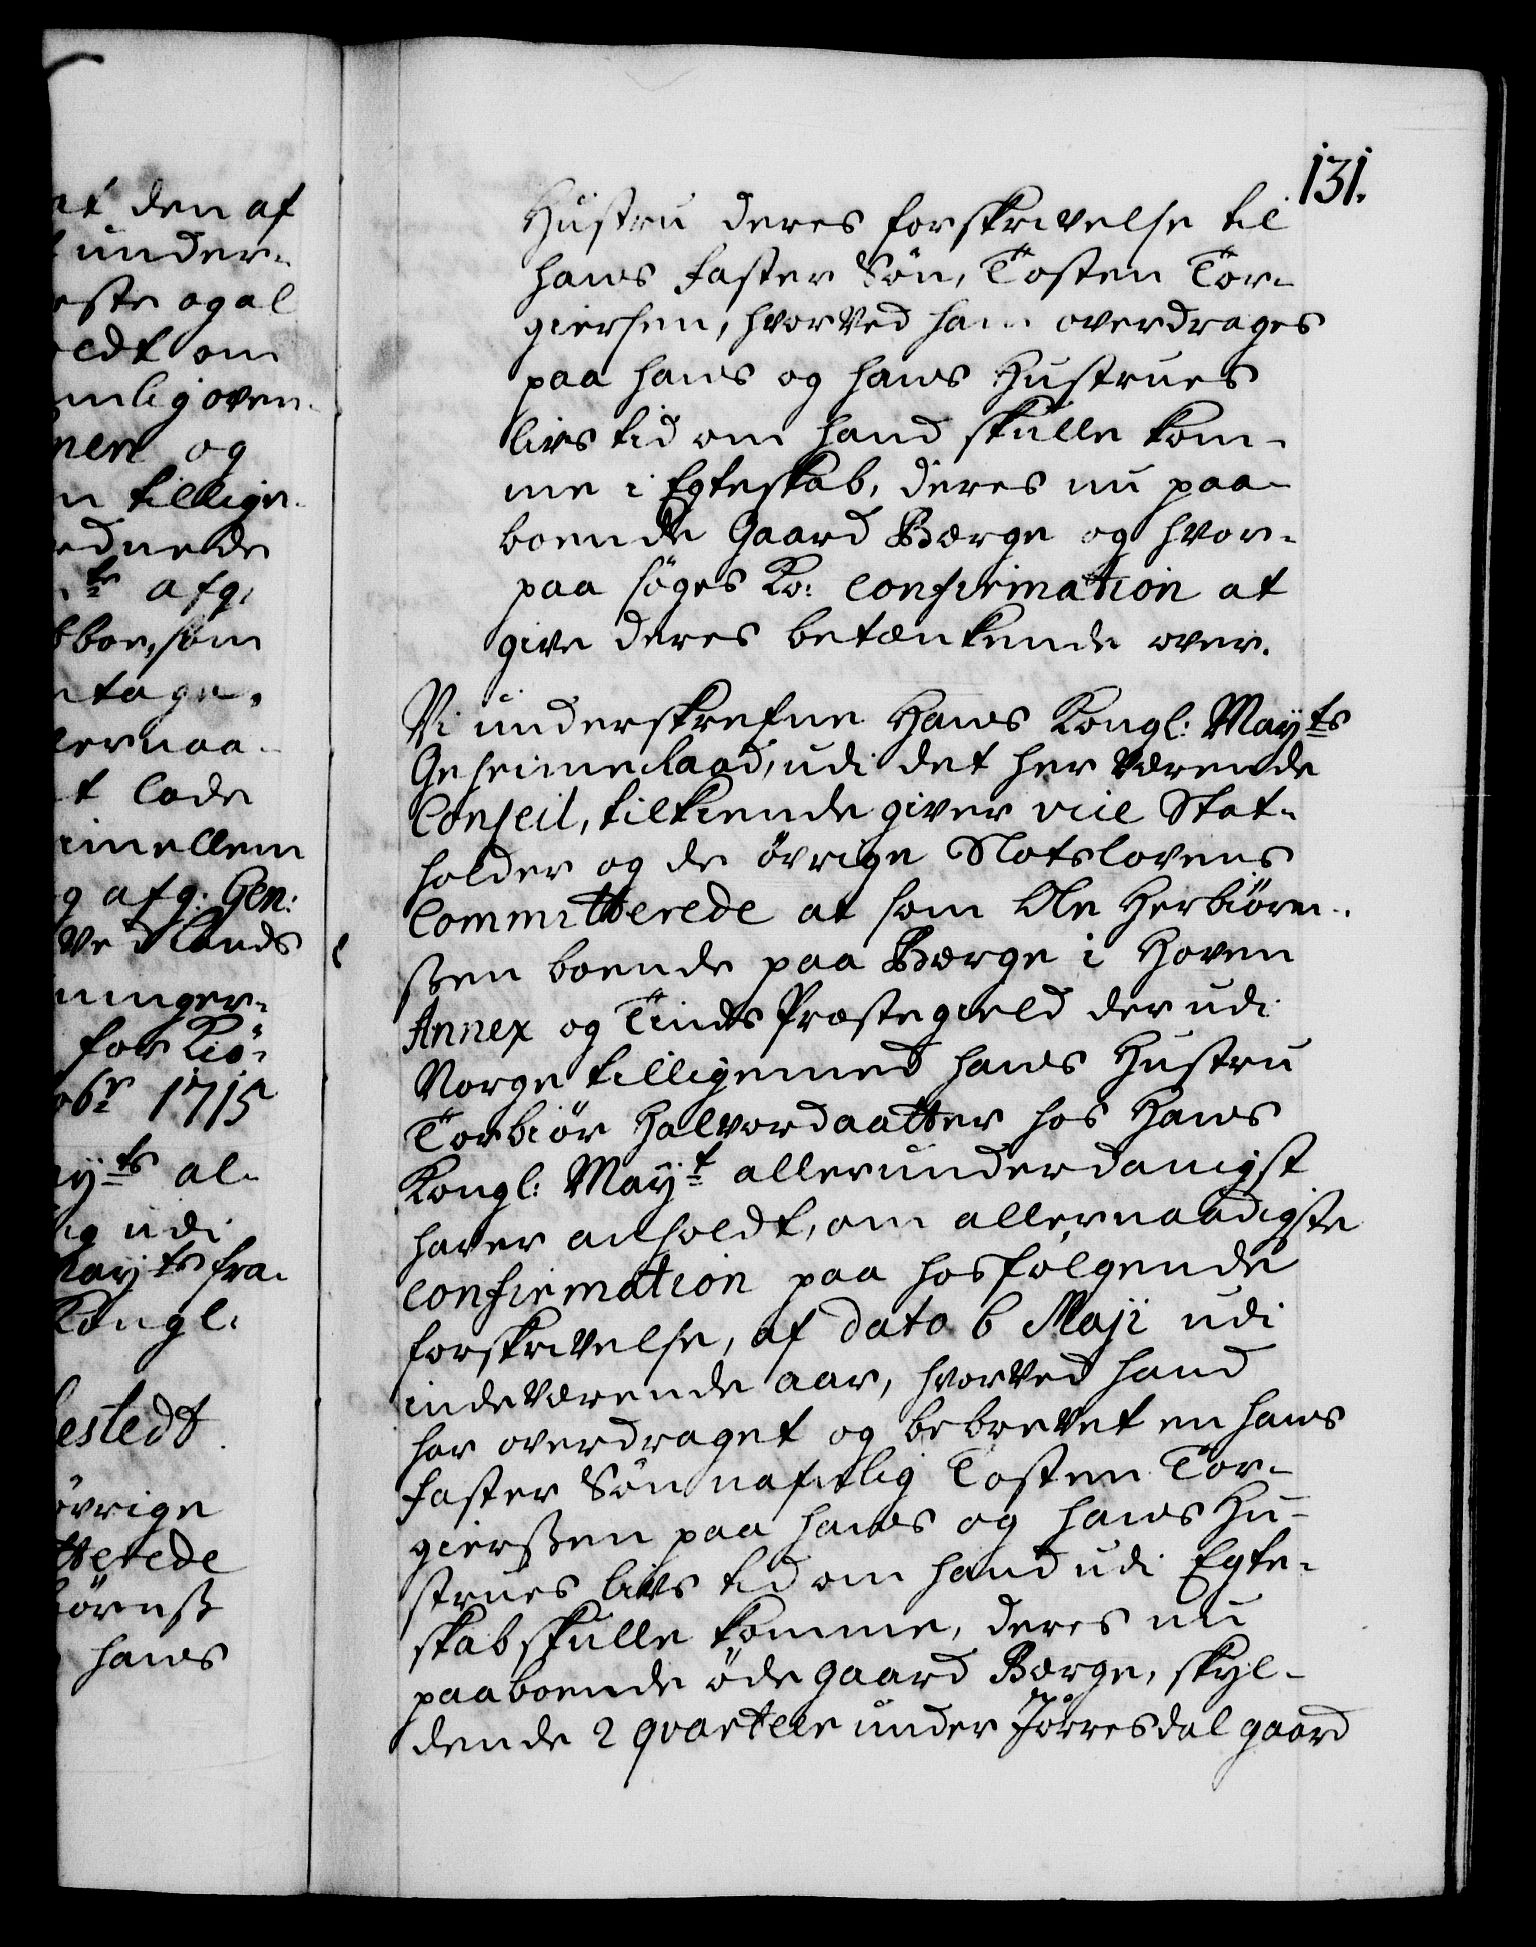 131.
Hüstrü deres forskrivelse til
hans faster Sön, Tosten Tor-
giersen, hvorved ham overdrages
paa hans og hans Hustrues
livs tid om hand skulle kom-
me i Egteskab, deres nu paa-
boende Gaard Bærge og hvor-
paa söges Ko: confirmation at
give deres betænkende over.
Vi underskrefne Hans Kongl: Mayts
Geheimeraad, udi det her værende
Conseil, tilkiende giver vice Stat-
holder og de övrige Slotslovens
Committerede at som Ole Herbiörn-
ßen boende paa Bærge i Hoven
Annex og Tinds Præstegield der udi
Norge tilligemed hans Hustru
Torbiör Halvordaatter hos Hans
Kongl: Mayt allerunderdanigst
haver anholdt, om allernaadigste
confirmation paa hosfölgende
forskrivelse, af dato 6 Maji udi
indeværende aar, hvorved hand
har overdraget og bebrevet en hans
faster Sön nafnlig Tosten Tor-
gierßen paa hans og hans Hu-
strues livs tid om hand udi Egte-
skab skulle komme, deres nu
paaboende öde gaard Bærge, skyl-
dende 2 qvarteer under Jörresdal gaard
et den af
under-
este og al
oldt om
mlig oven-
nen og
n tillige-
ednede
te afg:
boe, som
ntage,
lernaa-
t lade
imellem
g afg: Gen:
ved Lands
ninger-
for Kiö-
obr 1715
ayts al-
ig udi
Mayts fra-
Kongl:
bestedt
övrige
tterede
biörnß
hans